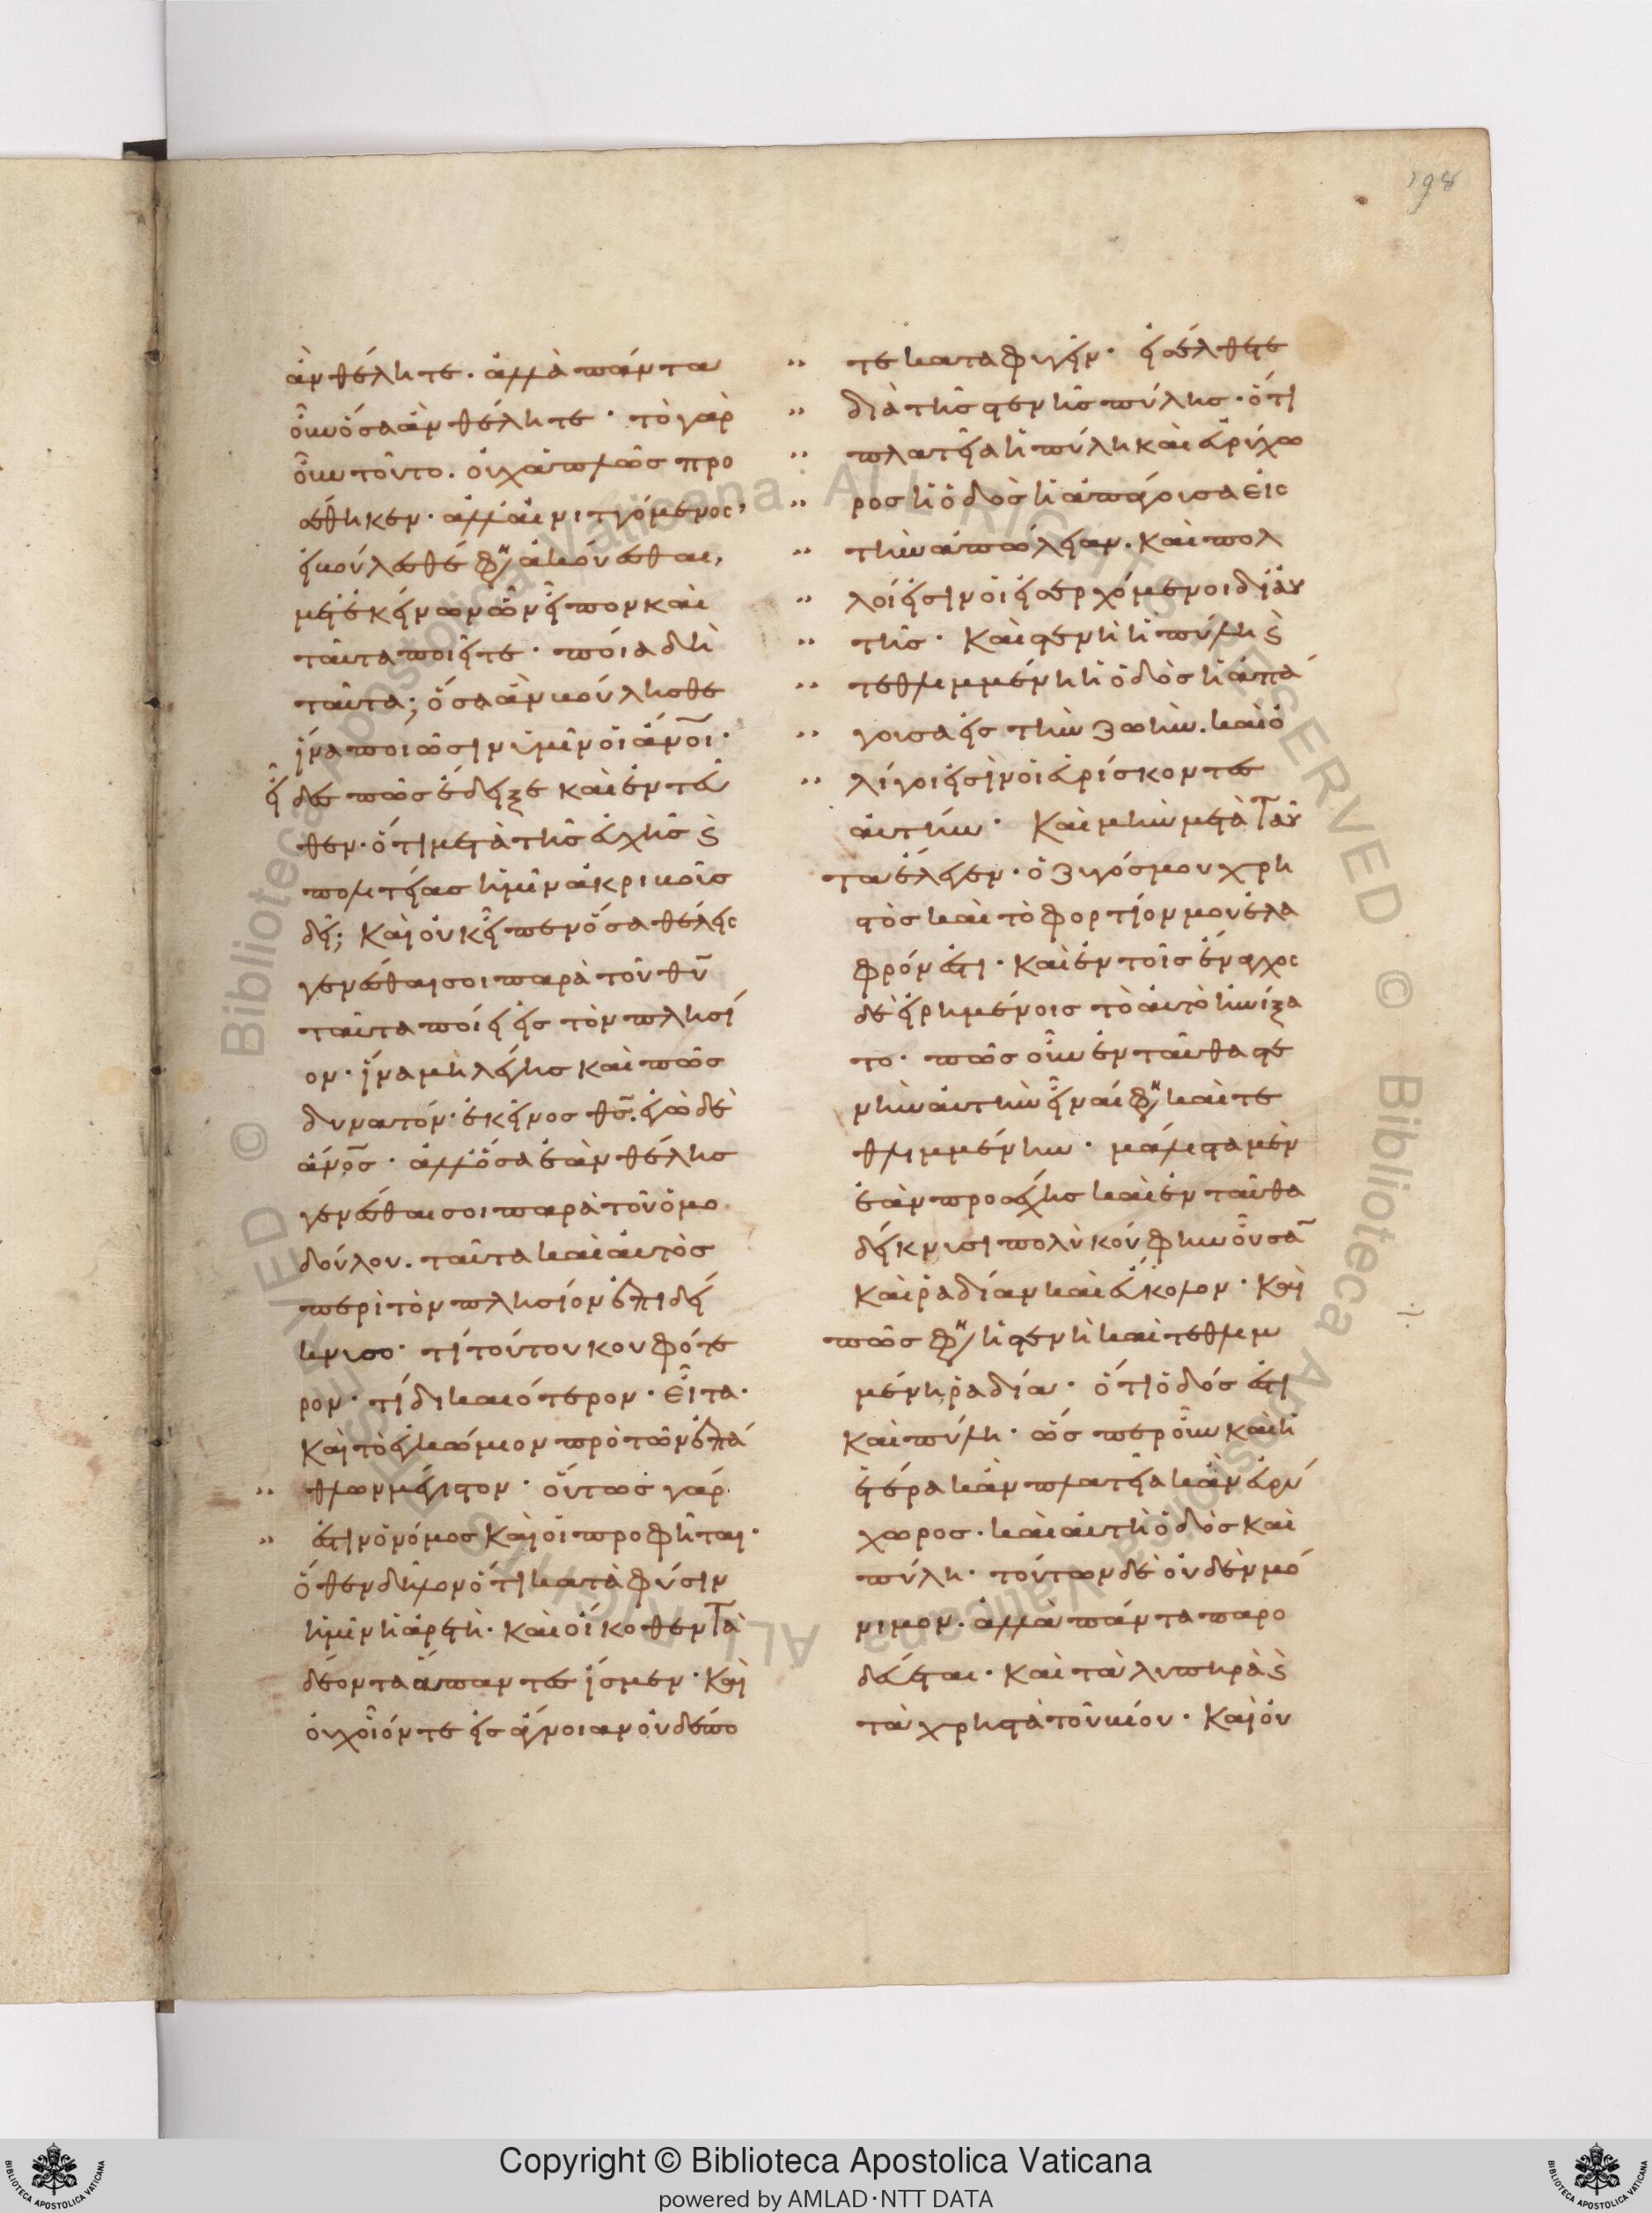 198
ἂν θέλητε. ἀλλὰ πάντα
οὖν ὅσα ἂν θέλητε· τὸ γὰρ
οὖν τοῦτο. οὐχ ἁπλῶς προ
σέθηκεν· ἀλλ' αἰνιττόμενος,
εἰ βούλεσθέ φη(σιν) ἀκούεσθαι,
μετ' ἐκείνων ὧν εἶπον καὶ
ταῦτα ποιεῖτε· ποῖα δὴ
ταῦτα; ὅσα ἂν βούλησθε
ἵνα ποιῶσιν ὑμῖν οἱ ἄνοι·
εἶδες πῶς ἔδειξε καὶ ἐνταῦ
θεν· ὅτι μετὰ τῆς εὐχῆς κ(αὶ)
πολιτείας ἡμῖν ἀκριβοῦς
δεῖ; Καὶ οὐκ εἶπεν ὅσα θέλεις
γενέσθαι σοι παρὰ τοῦ θυ
ταῦτα ποίει εἰς τὸν πλησί
ον· ἵνα μὴ λέγῃς καὶ πῶς
δυνατόν· ἐκεῖνος θς. ἐγὼ δὲ
ἄνος· ἀλλ' ὅσα ἐὰν θέλῃς
γενέσθαι σοι παρὰ τοῦ ὁμο
δούλου. ταῦτα καὶ αὐτὸς
περὶ τὸν πλησίον ἐπιδεί
κνυσο· τί τούτου κουφότε
ρον· τί δικαιότερον· Εἶτα·
Καὶ τὸ ἐγκώμιον πρὸ τῶν ἐπά
θλων μέγιστον· οὗτος γάρ
ἐστιν ὁ νόμος Καὶ οἱ προφῆται·
ὅθεν δῆλον ὅτι κατὰ φύσιν
ἡμῖν ἡ ἀρετή· καὶ οἴκοθεν τὰ
δέοντα ἅπαντες ἴσμεν· Καὶ
οὐχ οἷόν τε εἰς ἄγνοιαν οὐδέπο
τε καταφυγεῖν· εἰσέλθετε
διὰ τῆς στενῆς πύλης· ὅτι
πλατεῖα ἡ πύλη καὶ εὐρύχω
ρος ἡ ὁδὸς ἡ ἀπάγουσα εἰς
τὴν ἀπώλειαν. Καὶ πολ
λοί εἰσιν οἱ εἰσερχόμενοι δι' αὐ
τῆς· Καὶ στενὴ ἡ πύλη κ(αὶ)
τεθλιμμένη ἡ ὁδὸς ἡ ἀπά
γουσα εἰς τὴν ζωήν. καὶ ὀ
λίγοι εἰσὶν οἱ εὑρίσκοντες
αὐτήν· Καὶ μὴν μετὰ ταῦ
τα ἔλεγεν· ὁ ζυγός μου χρη
στὸς καὶ τὸ φορτίον μου ἐλα
φρόν ἐστι· Καὶ ἐν τοῖς ἔναγχος
δὲ εἰρημένοις τὸ αὐτὸ ᾐνίξα
το· πῶς οὖν ἐνταῦθα στε
νὴν αὐτὴν εἶναί φη(σι) καὶ τε
θλιμμένην· μάλιστα μὲν
ἐὰν προσέχῃς καὶ ἐνταῦθα
δείκνυσι πολὺ κούφην οὖσα(ν)
Καὶ ῥᾳδίαν καὶ εὔκολον· Καὶ
πῶς φη(σιν) ἡ στενὴ καὶ τεθλιμ
μένη ῥᾳδία· ὅτι ὁδός ἐστι
Καὶ πύλη· ὥσπερ οὖν καὶ ἡ
ἑτέρα κἂν πλατεῖα κἂν εὐρύ
χωρος. καὶ αὐτὴ ὁδὸς καὶ
πύλη· τούτων δὲ οὐδὲν μό
νιμον. ἀλλὰ πάντα παρο
δεύεται· Καὶ τὰ λυπηρὰ κ(αὶ)
τὰ χρηστὰ τοῦ βίου· Καὶ οὐ
Copyright © Biblioteca Apostolica Vaticana
powered by AMLAD·NTT DATA